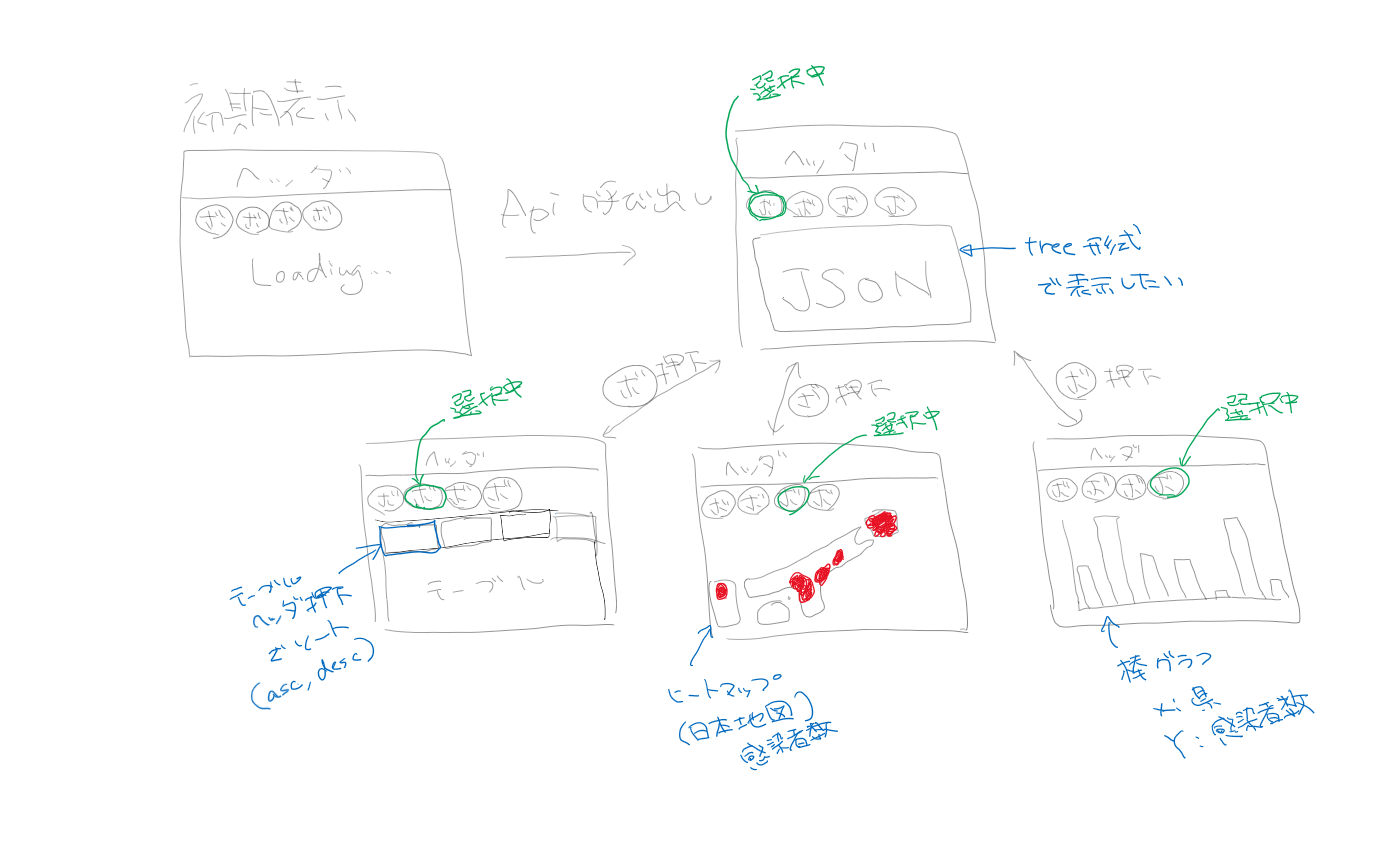 初期表示
ヘッダ
ボ ボ ボ ボ
Loading...
Api 呼び出し
選択中
ヘッダ
ボ ボ ボ ボ
JSON
tree 形式
で表示したい
ボ 押下
ボ 押下
ボ 押下
選択中
ヘッダ
ボ ボ ボ ボ
テーブル
テーブル
ヘッダ押下
でソート
(asc, desc)
選択中
ヘッダ
ボ ボ ボ ボ
ヒートマップ
(日本地図)
感染者数
選択中
ヘッダ
ボ ボ ボ ボ
棒グラフ
X: 県
Y: 感染者数